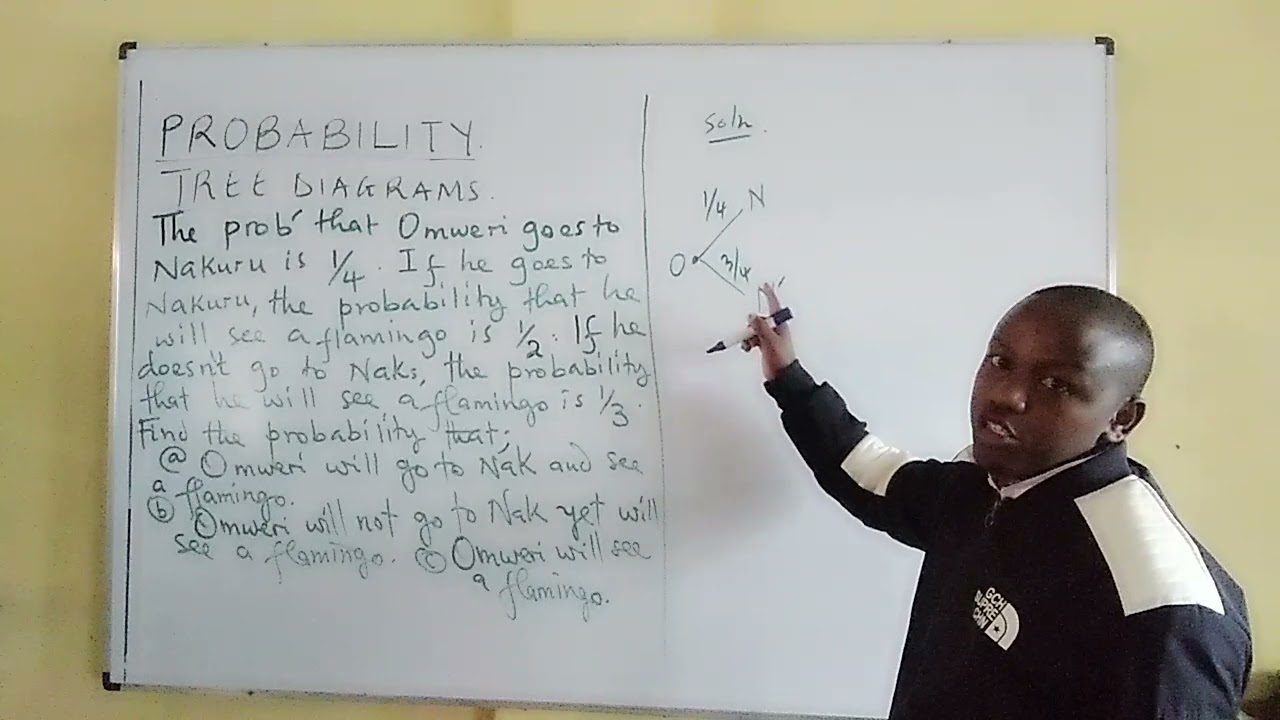 PROBABILITY.
TREE DIAGRAMS.
The prob' that Omweri goes to
Nakuru is 1/4. If he goes to
Nakuru, the probability that he
will see a flamingo is 1/2. If he
doesn't go to Naks, the probability
that he will see a flamingo is 1/3.
Find the probability that;
(a) Omweri will go to Nak and see
a flamingo.
(b) Omweri will not go to Nak yet will
see a flamingo. (c) Omweri will see
a flamingo.
soln.
1/4 N
O
3/4
N'
GCH
SUPRE
CHNT